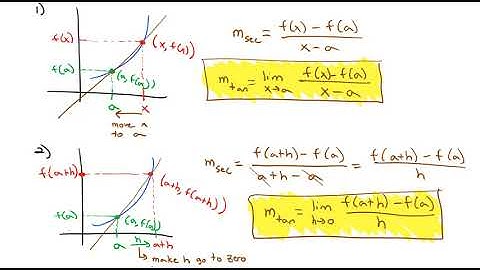 1)
f(x)
f(a)
(x, f(x))
(a, f(a))
a x
move x
to a
m_sec = f(x) - f(a) / x - a
m_tan = lim x→a f(x) - f(a) / x - a
2)
f(a+h)
f(a)
(a+h, f(a+h))
(a, f(a))
a h→ a+h
↳ make h go to zero
m_sec = f(a+h) - f(a) / a + h - a = f(a+h) - f(a) / h
m_tan = lim h→0 f(a+h) - f(a) / h